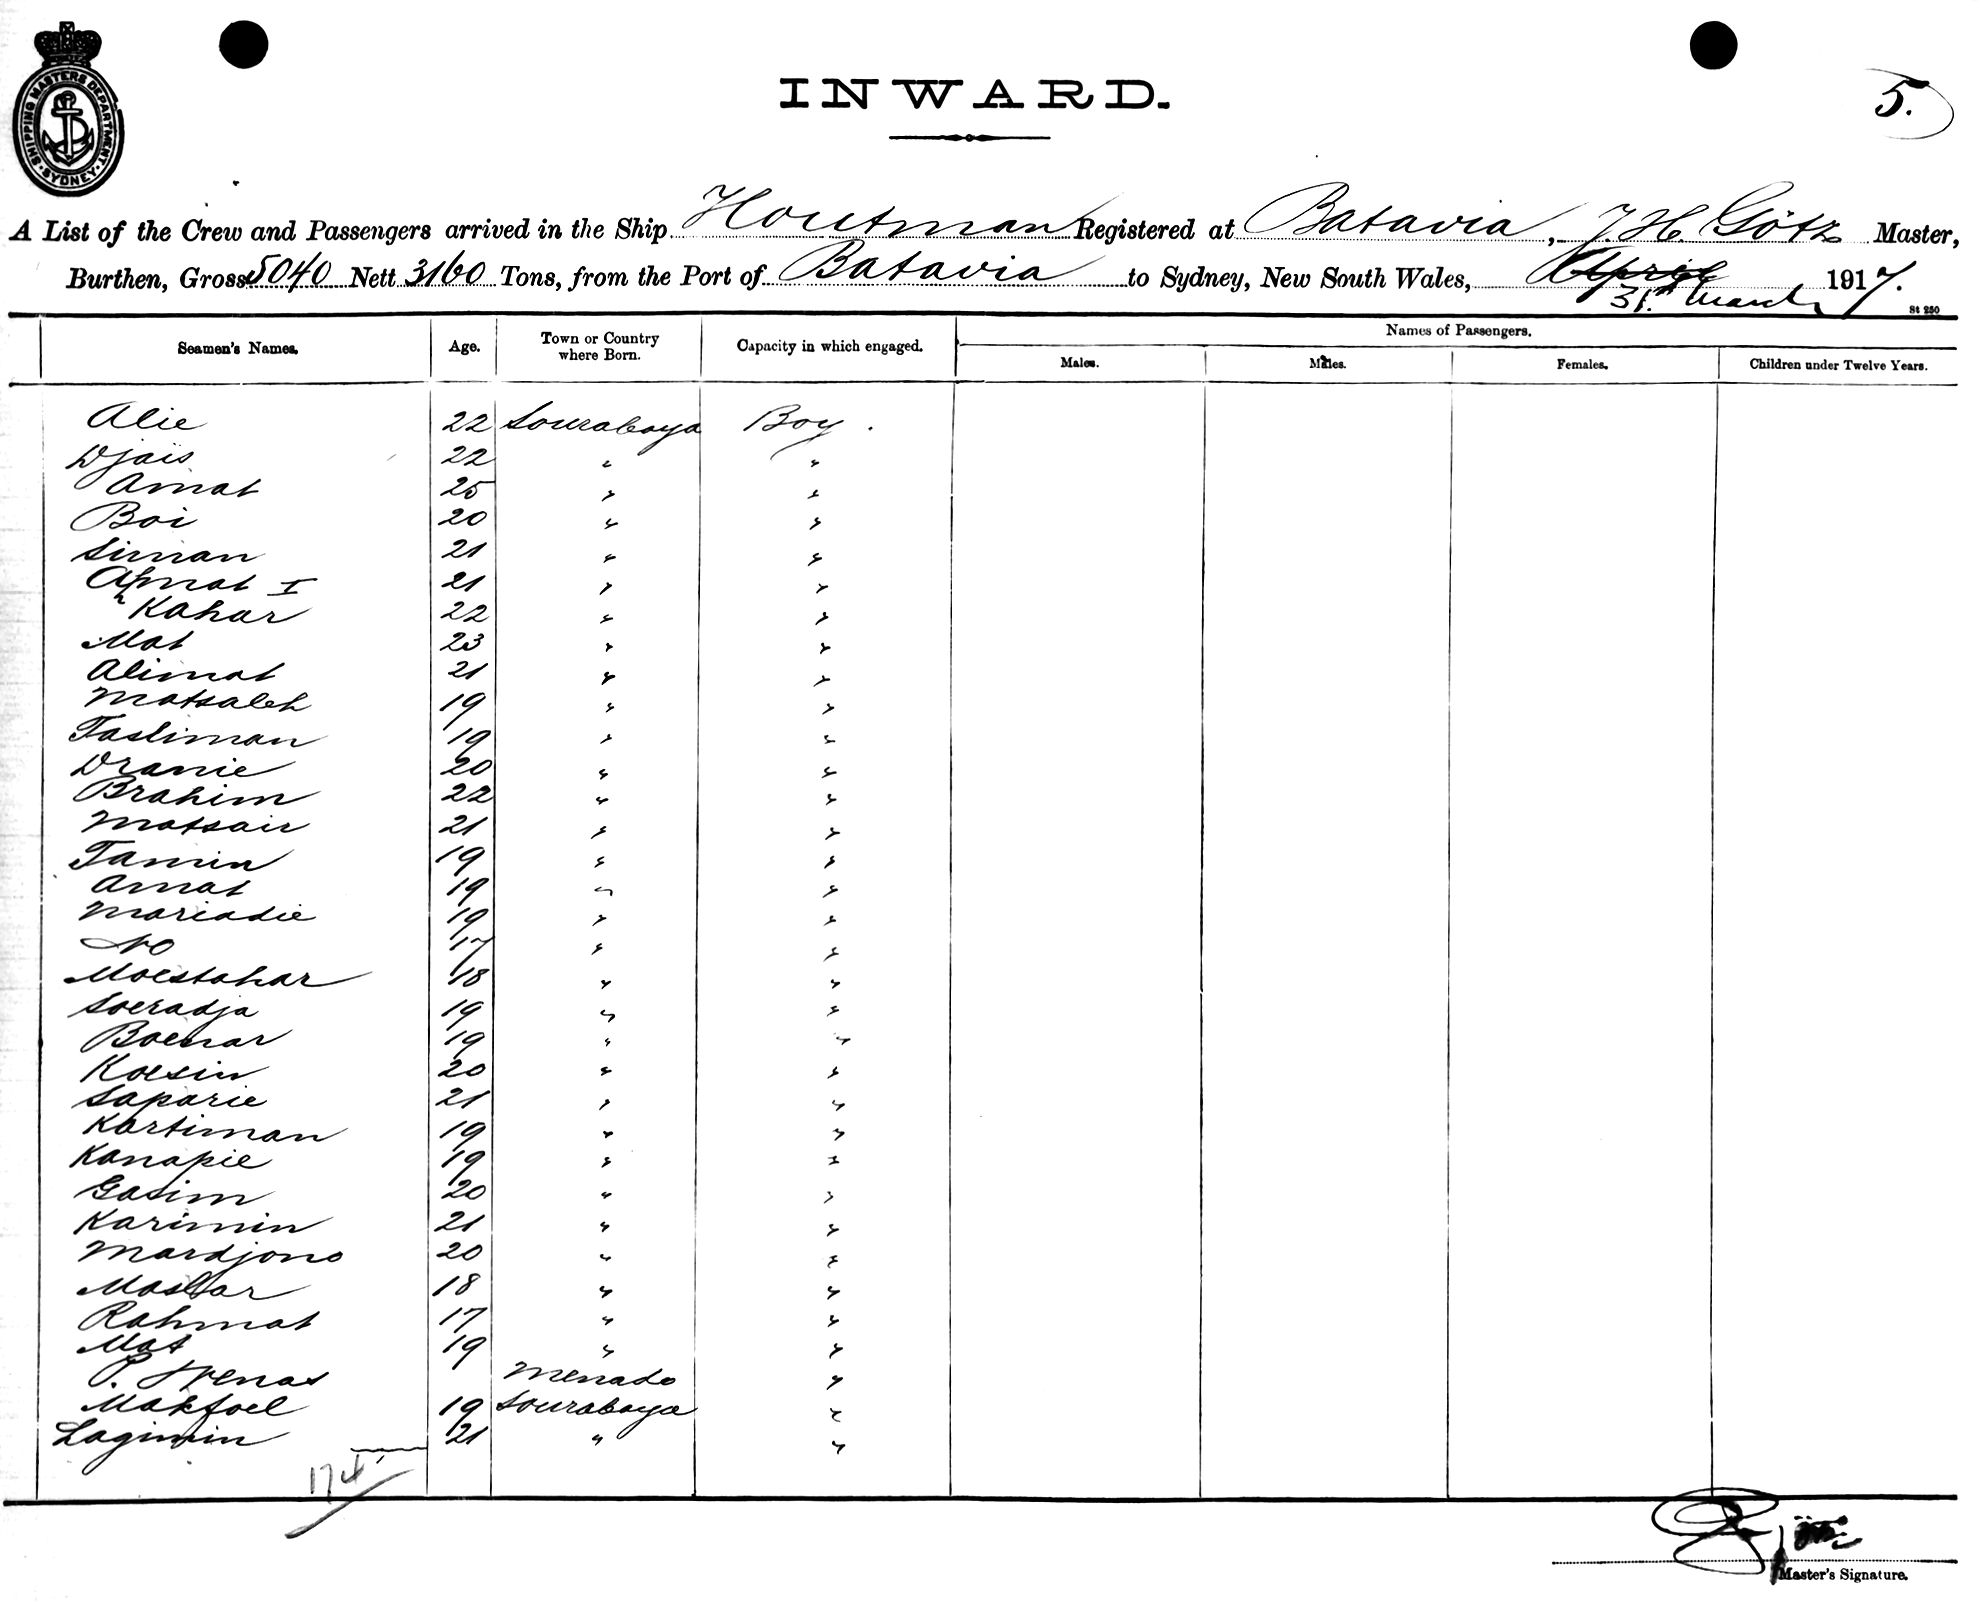 SHIPPING MASTERS DEPARTMENT · SYDNEY ·
INWARD.
5.
A List of the Crew and Passengers arrived in the Ship Houtman Registered at Batavia, J. H. Götz Master,
Burthen, Gross 5040 Nett 3160 Tons, from the Port of Batavia to Sydney, New South Wales, April 31st March 1917.
St 250
Seamen's Names. Age. Town or Country where Born. Capacity in which engaged. Names of Passengers.
Males. Males. Females. Children under Twelve Years.
Alie 22 Sourabaya Boy.
Djaïs 22 " "
Amat 25 " "
Boi 20 " "
Siman 21 " "
Ahmat I 21 " "
Kahar 22 " "
Mat 23 " "
Alimat 21 " "
Matsaleh 19 " "
Tasliman 19 " "
Dranie 20 " "
Brahim 22 " "
Matsair 21 " "
Tamin 19 " "
Amat 19 " "
Mariadie 19 " "
No 17 " "
Moestahar 18 " "
Soeradja 19 " "
Boenar 19 " "
Koesin 20 " "
Saparie 21 " "
Kartiman 19 " "
Kanapie 19 " "
Gasim 20 " "
Karimin 21 " "
Mardjono 20 " "
Mastar 18 " "
Rahmat 17 " "
Mat 19 " "
P. Wenas Menado "
Makfoel 19 Sourabaya "
Lagimin 21 " "
Master's Signature.